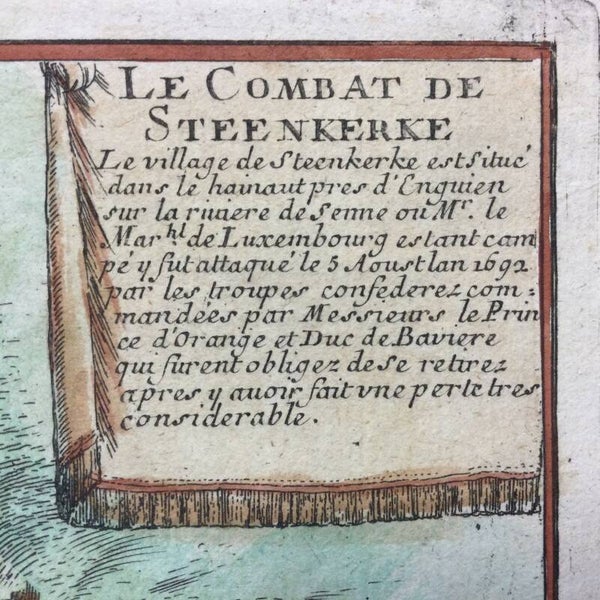 LE COMBAT DE
STEENKERKE
Le village de Steenkerke est Situé
dans le hainaut pres d'Enguien
sur la riviere de Senne ou Mr. le
Mar.hl de Luxembourg estant cam
pé y fut attaqué le 5 Aoust lan 1692
par les troupes confederez com=
mandées par Messieurs le Prin
ce d'Orange et Duc de Baviere
qui furent obligez de se retirez
apres y auoir fait vne perte tres
considerable.